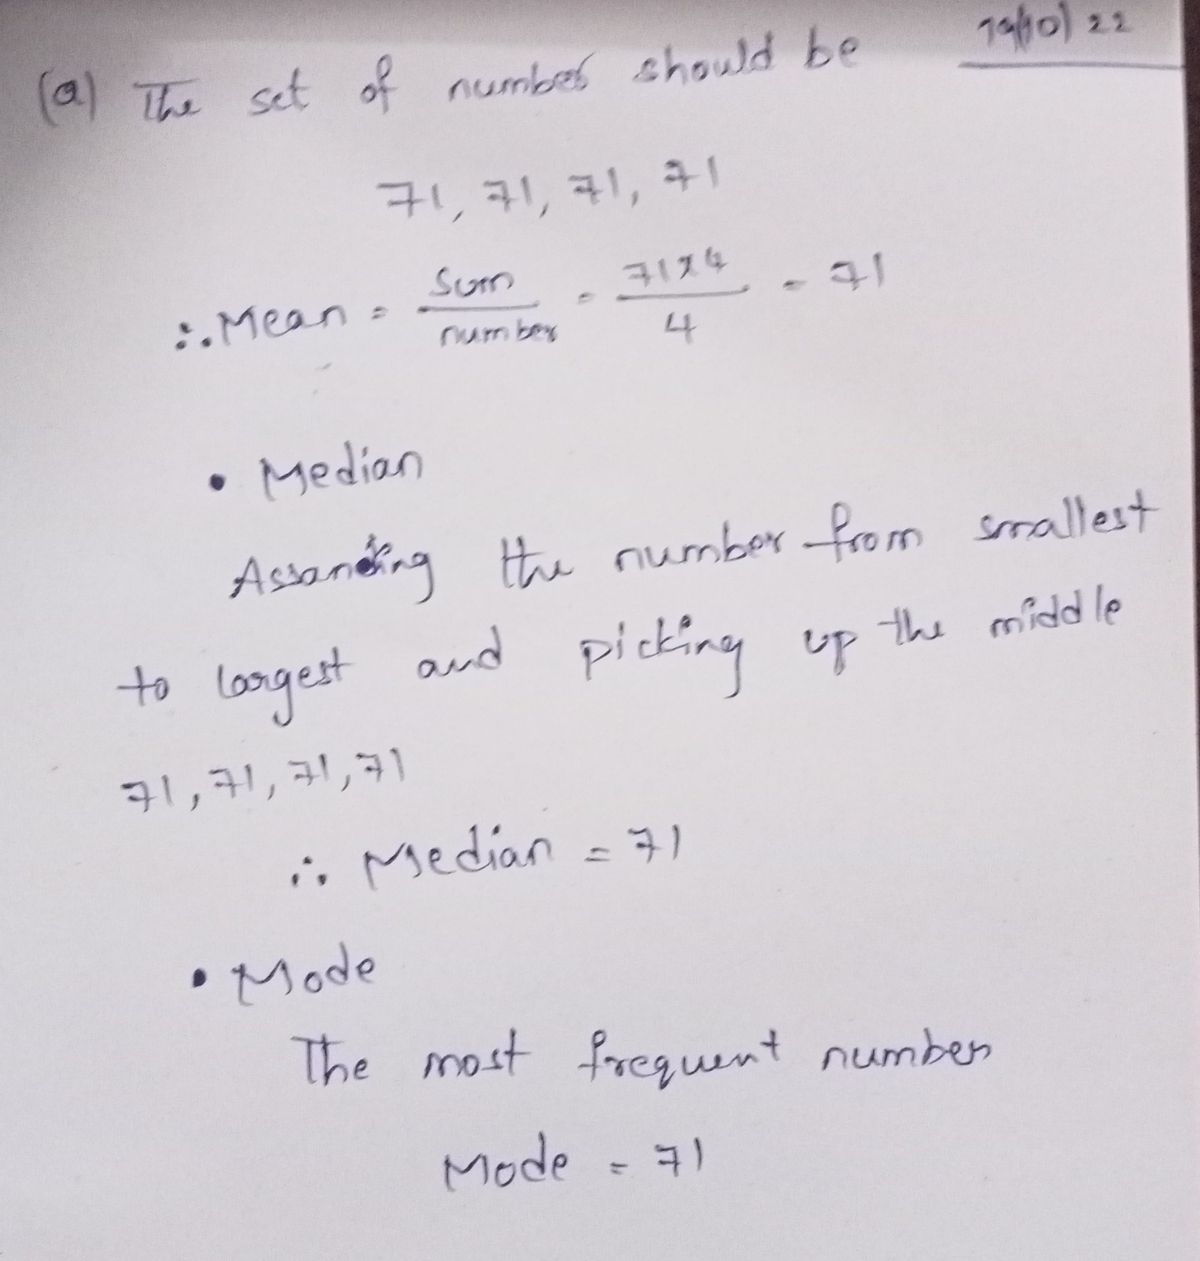 19/10/22
(a) The set of number should be
71, 71, 71, 71
∴ Mean = Sum/number = 71x4/4 = 71
• Median
Assanding the number from smallest
to largest and picking up the middle
71, 71, 71, 71
∴ Median = 71
• Mode
The most frequent number
Mode = 71